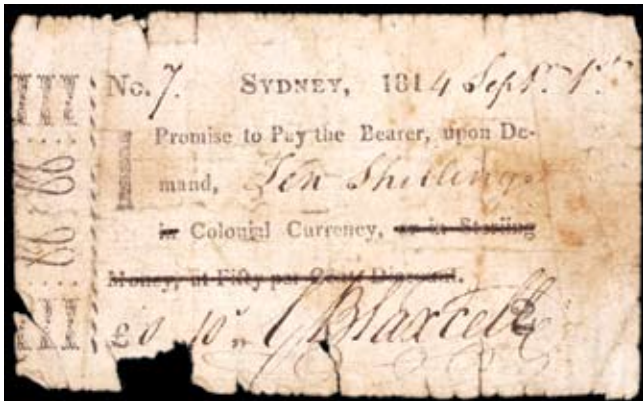 No. 7. SYDNEY, 1814 Sepr. 1st
I Promise to Pay the Bearer, upon De-
mand, Ten Shillings
in Colonial Currency, or in Sterling
Money, at Fifty per Cent. Discount.
£0 10s. Blaxcell